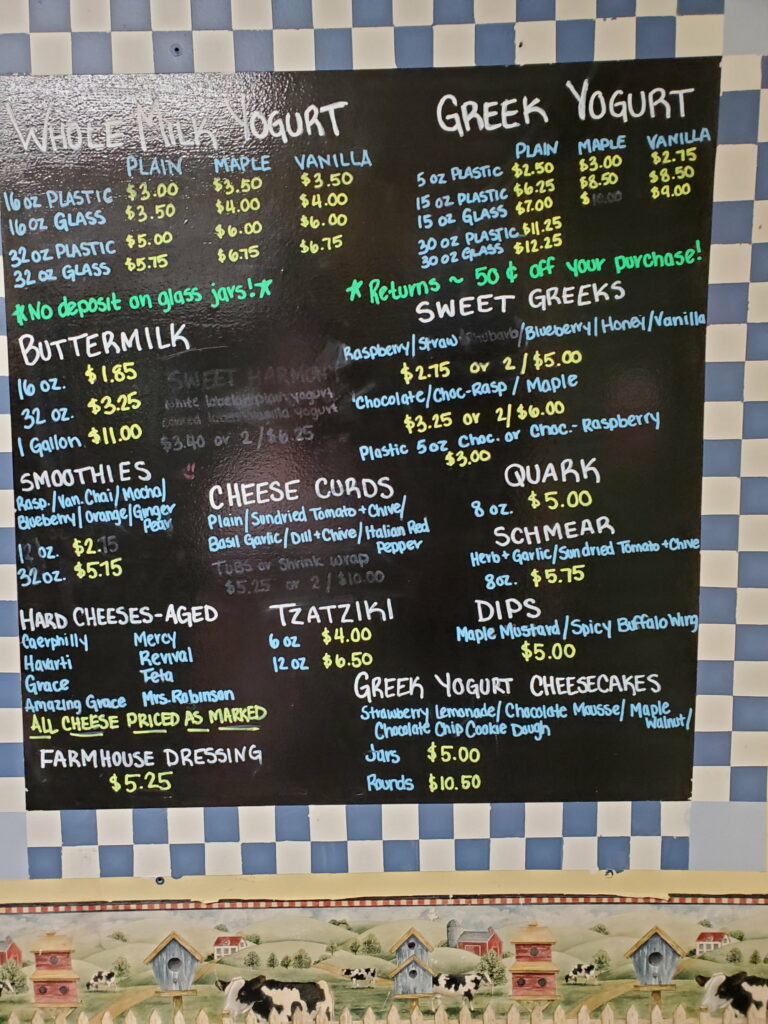 WHOLE MILK YOGURT
PLAIN MAPLE VANILLA
16 oz PLASTIC $3.00 $3.50 $3.50
16 oz GLASS $3.50 $4.00 $4.00
32 oz PLASTIC $5.00 $6.00 $6.00
32 oz GLASS $5.75 $6.75 $6.75
*No deposit on glass jars!*
GREEK YOGURT
PLAIN MAPLE VANILLA
5 oz PLASTIC $2.50 $3.00 $2.75
15 oz PLASTIC $6.25 $8.50 $8.50
15 oz GLASS $7.00 $ $9.00
30 oz PLASTIC $11.25
30 oz GLASS $12.25
*Returns ~ 50¢ off your purchase!
BUTTERMILK
16 oz. $1.85
32 oz. $3.25
1 Gallon $11.00
SWEET HARMONY
white label plain yogurt
vanilla yogurt
$3.40 or 2/$6.25
SWEET GREEKS
Raspberry/Straw Rhubarb/Blueberry/Honey/Vanilla
$2.75 or 2/$5.00
Chocolate/Choc-Rasp/Maple
$3.25 or 2/$6.00
Plastic 5oz Choc. or Choc.-Raspberry
$3.00
SMOOTHIES
Rasp./Van.Chai/Mocha/
Blueberry/Orange/Ginger
Pear
12 oz. $2.75
32oz. $5.75
CHEESE CURDS
Plain/Sundried Tomato+Chive/
Basil Garlic/Dill+Chive/Italian Red
Pepper
TUBS or Shrink wrap
$5.25 or 2/$10.00
QUARK
8 oz. $5.00
SCHMEAR
Herb+Garlic/Sundried Tomato+Chive
8oz. $5.75
HARD CHEESES-AGED
Caerphilly Mercy
Havarti Revival
Grace Teta
Amazing Grace Mrs. Robinson
ALL CHEESE PRICED AS MARKED
TZATZIKI
6 oz $4.00
12 oz $6.50
DIPS
Maple Mustard/Spicy Buffalo Wing
$5.00
FARMHOUSE DRESSING
$5.25
GREEK YOGURT CHEESECAKES
Strawberry Lemonade/Chocolate Mousse/Maple
Walnut/
Chocolate Chip Cookie Dough
Jars $5.00
Rounds $10.50